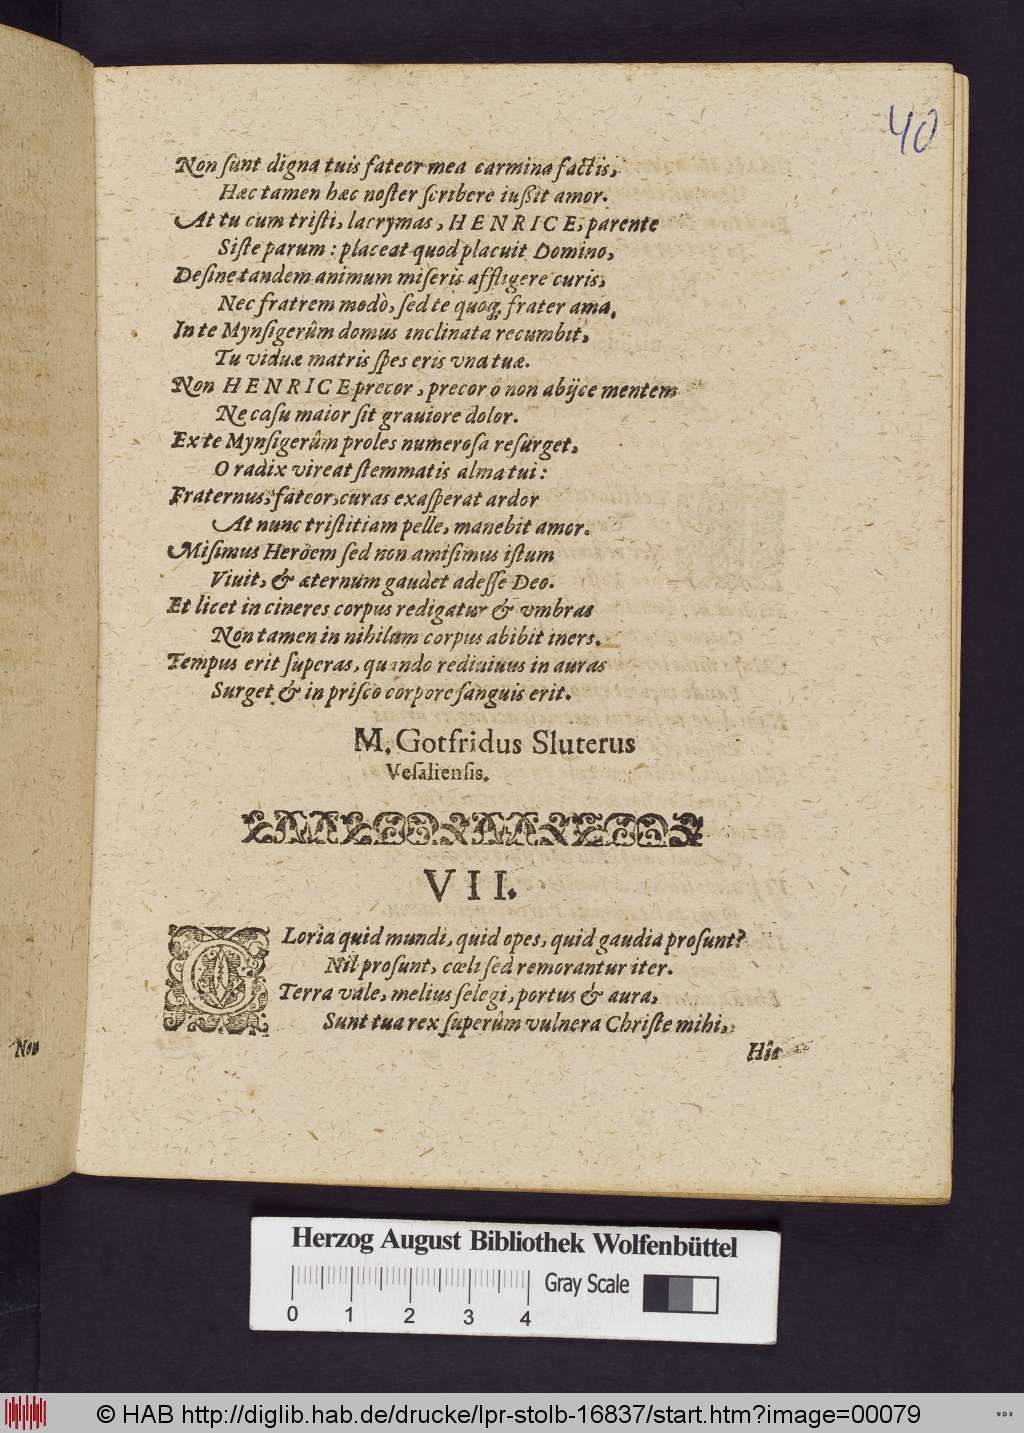 40
Non sunt digna tuis fateor mea carmina factis,
Hæc tamen hæc noster scribere iußit amor.
At tu cum tristi, lacrymas, HENRICE, parente
Siste parum: placeat quod placuit Domino,
Desine tandem animum miseris affligere curis,
Nec fratrem modò, sed te quoq; frater ama.
In te Mynsigerûm domus inclinata recumbit,
Tu viduæ matris spes eris vna tuæ.
Non HENRICE precor, precor ô non abijce mentem
Ne casu maior sit grauiore dolor.
Ex te Mynsigerûm proles numerosa resurget,
O radix vireat stemmatis alma tui:
Fraternus, fateor, curas exasperat ardor
At nunc tristitiam pelle, manebit amor.
Misimus Heröem sed non amisimus istum
Viuit, & æternum gaudet adesse Deo.
Et licet in cineres corpus redigatur & vmbras
Non tamen in nihilum corpus abibit iners.
Tempus erit superas, quando rediuiuus in auras
Surget & in prisco corpore sanguis erit.
M. Gotfridus Sluterus
Vesaliensis.
VII.
GLoria quid mundi, quid opes, quid gaudia prosunt?
Nil prosunt, cœli sed remorantur iter.
Terra vale, melius selegi, portus & aura,
Sunt tua rex superûm vulnera Christe mihi,
Non
Hîc
Herzog August Bibliothek Wolfenbüttel
0 1 2 3 4
Gray Scale
© HAB http://diglib.hab.de/drucke/lpr-stolb-16837/start.htm?image=00079